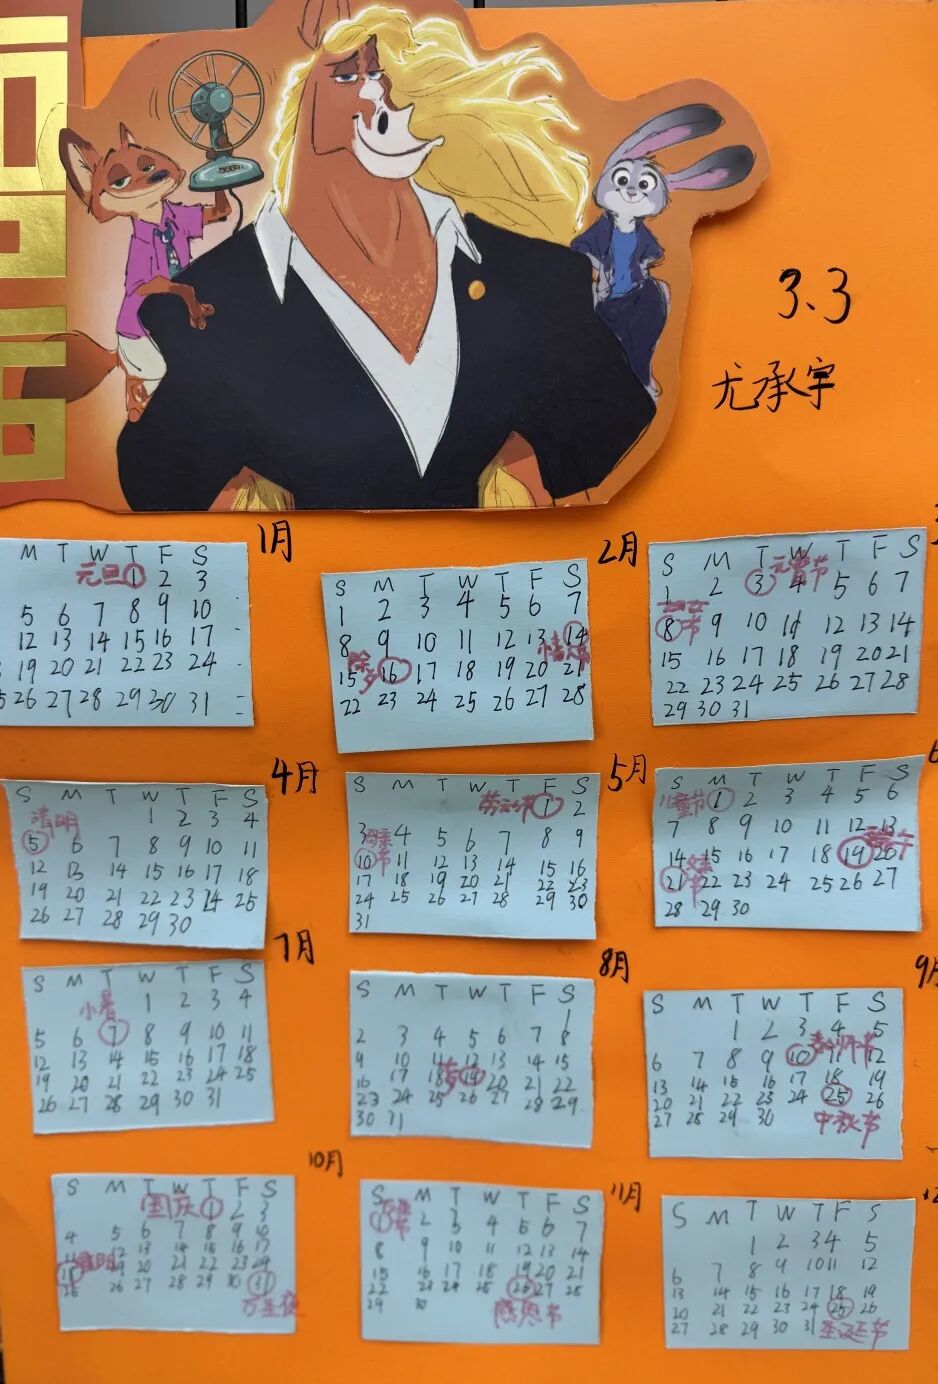 3.3
尤承宇
1月
M T W T F S
元旦 1 2 3
5 6 7 8 9 10
12 13 14 15 16 17
19 20 21 22 23 24
26 27 28 29 30 31
2月
S M T W T F S
1 2 3 4 5 6 7
8 9 10 11 12 13 14
情人节
除夕
15 16 17 18 19 20 21
22 23 24 25 26 27 28
S M T W T F S
元宵节
1 2 3 4 5 6 7
妇女节
8 9 10 11 12 13 14
15 16 17 18 19 20 21
22 23 24 25 26 27 28
29 30 31
4月
S M T W T F S
清明 1 2 3 4
5 6 7 8 9 10 11
12 13 14 15 16 17 18
19 20 21 22 23 24 25
26 27 28 29 30
5月
S M T W T F S
劳动节 1 2
3 4 5 6 7 8 9
母亲节
10 11 12 13 14 15 16
17 18 19 20 21 22 23
24 25 26 27 28 29 30
31
6
S M T W T F S
儿童节 1 2 3 4 5 6
7 8 9 10 11 12 13
端午
14 15 16 17 18 19 20
父亲节
21 22 23 24 25 26 27
28 29 30
7月
S M T W T F S
小暑 1 2 3 4
5 6 7 8 9 10 11
12 13 14 15 16 17 18
19 20 21 22 23 24 25
26 27 28 29 30 31
8月
S M T W T F S
1
2 3 4 5 6 7 8
9 10 11 12 13 14 15
16 17 18 19 20 21 22
23 24 25 26 27 28 29
30 31
9月
S M T W T F S
1 2 3 4 5
教师节
6 7 8 9 10 11 12
13 14 15 16 17 18 19
20 21 22 23 24 25 26
27 28 29 30
中秋节
10月
S M T W T F S
国庆 1 2 3
4 5 6 7 8 9 10
重阳
12 13 14 15 16 17
18 19 20 21 22 23
25 26 27 28 29 30 31
万圣夜
11月
S M T W T F S
万圣节
1 2 3 4 5 6 7
8 9 10 11 12 13 14
15 16 17 18 19 20 21
22 23 24 25 26 27 28
29 30
感恩节
S M T W T F S
1 2 3 4 5
6 7 8 9 10 11 12
13 14 15 16 17 18 19
20 21 22 23 24 25 26
27 28 29 30 31
圣诞节